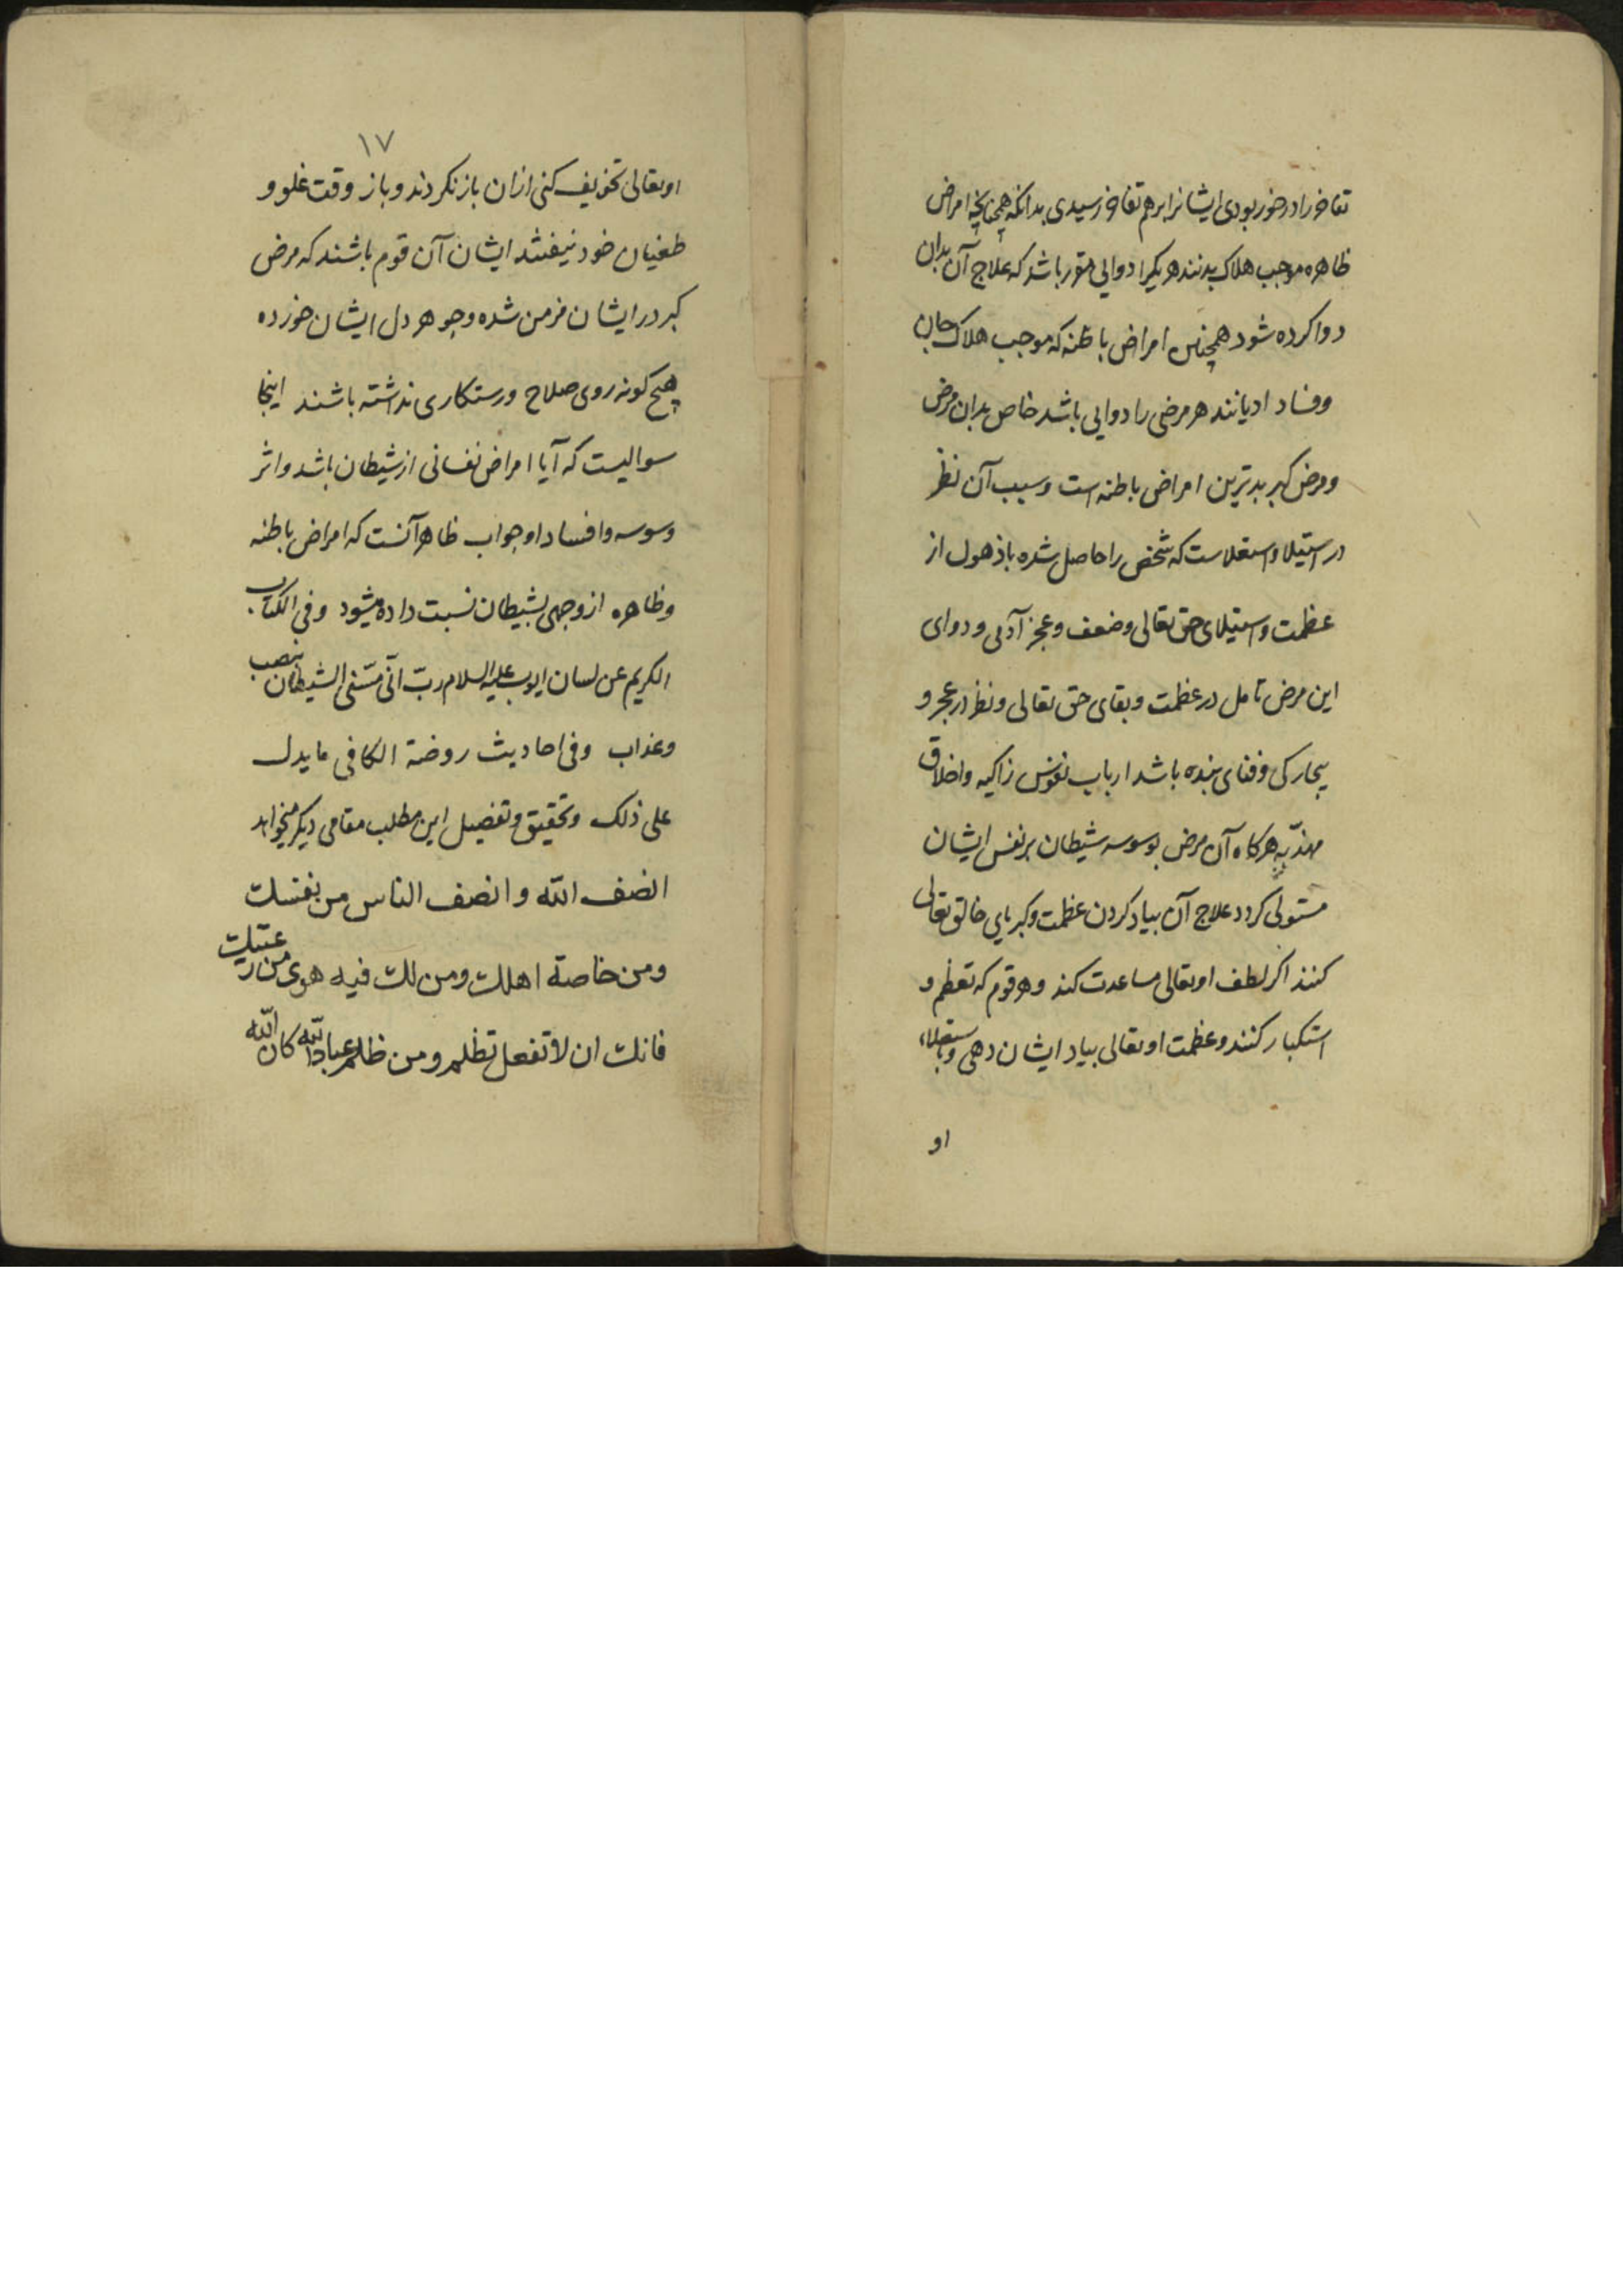 تفاخر را در خور بودی ایشانرا برهم تفاخر رسیدی بدانکه همچنانچه امراض
ظاهره موجب هلاک بدنند هر یکرا دوایی مقرر باشد که علاج آن بدان
دوا کرده شود همچنین امراض باطنه که موجب هلاک جان
وفساد ادیانند هر مرضی را دوایی باشد خاص بدان مرض
ومرض کبر بدترین امراض باطنه است وسبب آن نظر
در استیلا واستعلاست که شخص را حاصل شده باذهول از
عظمت واستیلای حق تعالی وضعف وعجز آدمی ودوای
این مرض تامل در عظمت وبقای حق تعالی ونظر در عجز و
بیچارکی وفنای بنده باشد ارباب نفوس زاکیه واخلاق
مهذّبه هرکاه آن مرض بوسوسه شیطان بر نفس ایشان
مستولی کردد علاج آن بیاد کردن عظمت وکبریای خالق تعالی
کنند اکر لطف او تعالی مساعدت کند وهر قوم که تعظم و
استکبار کنند وعظمت او تعالی بیاد ایشان دهی وباستعلاء
او
۱۷
او تعالی تخویف کنی ازان باز نکردند وباز وقت غلو و
طغیان خود نیفتند ایشان آن قوم باشند که مرض
کبر در ایشان مزمن شده وجوهر دل ایشان خورده
هیچ کونه روی صلاح ورستکاری نداشته باشند اینجا
سوالیست که آیا امراض نفسانی از شیطان باشد واثر
وسوسه وافساد او جواب ظاهر آنست که امراض باطنه
وظاهره از وجهی بشیطان نسبت داده میشود وفی الکتاب
الکریم عن لسان ایوب علیه السلام ربّ انّی مسّنی الشیطان بنصب
وعذاب وفی احادیث روضة الکافی ما یدل
علی ذلک وتحقیق وتفصیل این مطلب مقامی دیکر میخواهد
انصف الله وانصف الناس من نفسک
ومن خاصة اهلک ومن لک فیه هوی من رعیتک
فانک ان لا تفعل تظلم ومن ظلم عباد الله کان الله